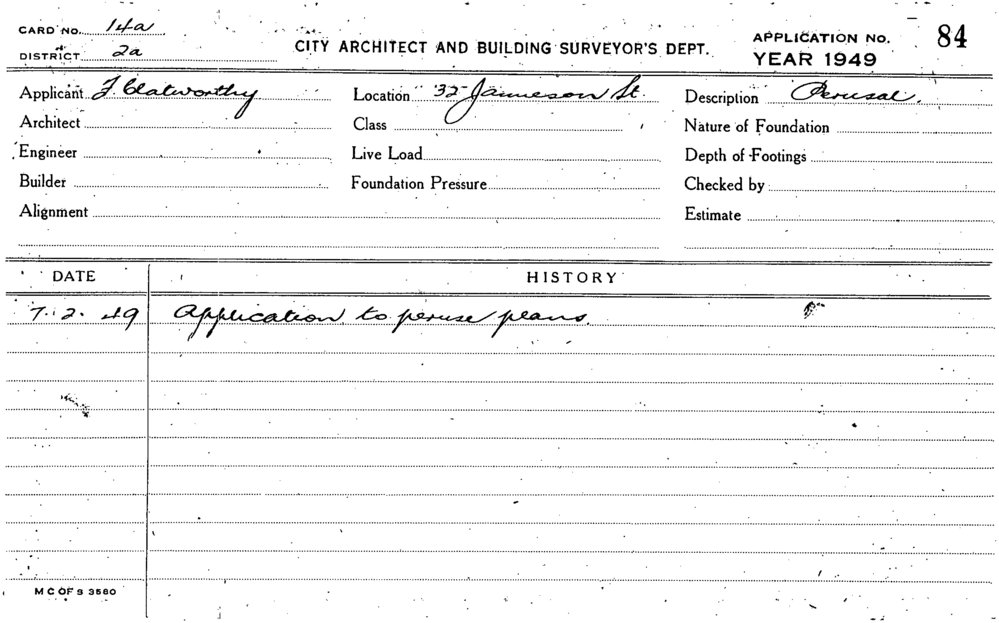 CARD NO. 14a
DISTRICT 2a
CITY ARCHITECT AND BUILDING SURVEYOR'S DEPT.
APPLICATION NO. 84
YEAR 1949
Applicant F. Clatworthy Location 32 Jamieson St. Description Perusal.
Architect Class Nature of Foundation
Engineer Live Load Depth of Footings
Builder Foundation Pressure Checked by
Alignment Estimate
DATE HISTORY
7. 2. 49 Application to peruse plans.
M C OF S 3560